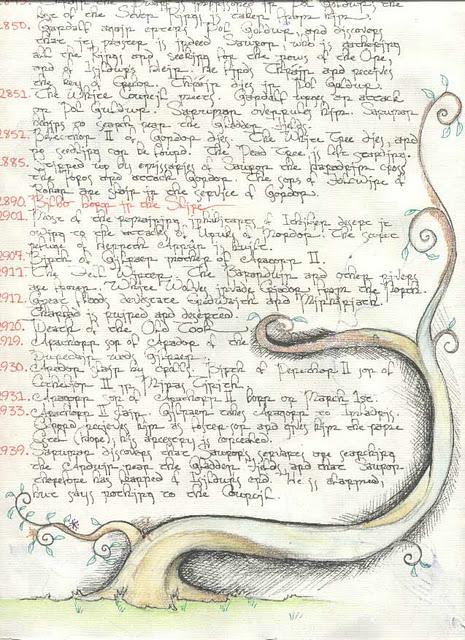 last of the Seven Rings is taken from him.
2850. Gandalf again enters Dol Guldur, and discovers
that its master is indeed Sauron who is gathering
all the Rings and seeking for the news of the One,
and of Isildur's Heir. He finds Thrain and receives
the key of Erebor. Thrain dies in Dol Guldur.
2851. The White Council meets. Gandalf urges an attack
on Dol Guldur. Saruman overrules him. Saruman
begins to search near the Gladden Fields.
2852. Belecthor II of Gondor dies. The White Tree dies, and
no seedling can be found. The Dead Tree is left standing.
2885. Stirred up by emissaries of Sauron the Haradrim cross
the Poros and attack Gondor. The sons of Folcwine of
Rohan are slain in the service of Gondor.
2890. Bilbo born in the Shire
2901. Most of the remaining inhabitants of Ithilien desert it
owing to the attacks of Uruks of Mordor. The secret
refuge of Henneth Annun is built.
2907. Birth of Gilraen mother of Aragorn II.
2911. The Fell Winter. The Baranduin and other rivers
are frozen. White Wolves invade Eriador from the North.
2912. Great floods devastate Enedwaith and Minhiriath.
Tharbad is ruined and deserted.
2920. Death of the Old Took.
2929. Arathorn son of Arador of the
Dunedain weds Gilraen.
2930. Arador slain by trolls. Birth of Denethor II son of
Ecthelion II in Minas Tirith.
2931. Aragorn son of Arathorn II born on March 1st.
2933. Arathorn II slain. Gilraen takes Aragorn to Imladris.
Elrond receives him as foster-son and gives him the name
Estel (Hope); his ancestry is concealed.
2939. Saruman discovers that Sauron's servants are searching
the Anduin near the Gladden Fields, and that Sauron
therefore has learned of Isildur's end. He is alarmed,
but says nothing to the Council.